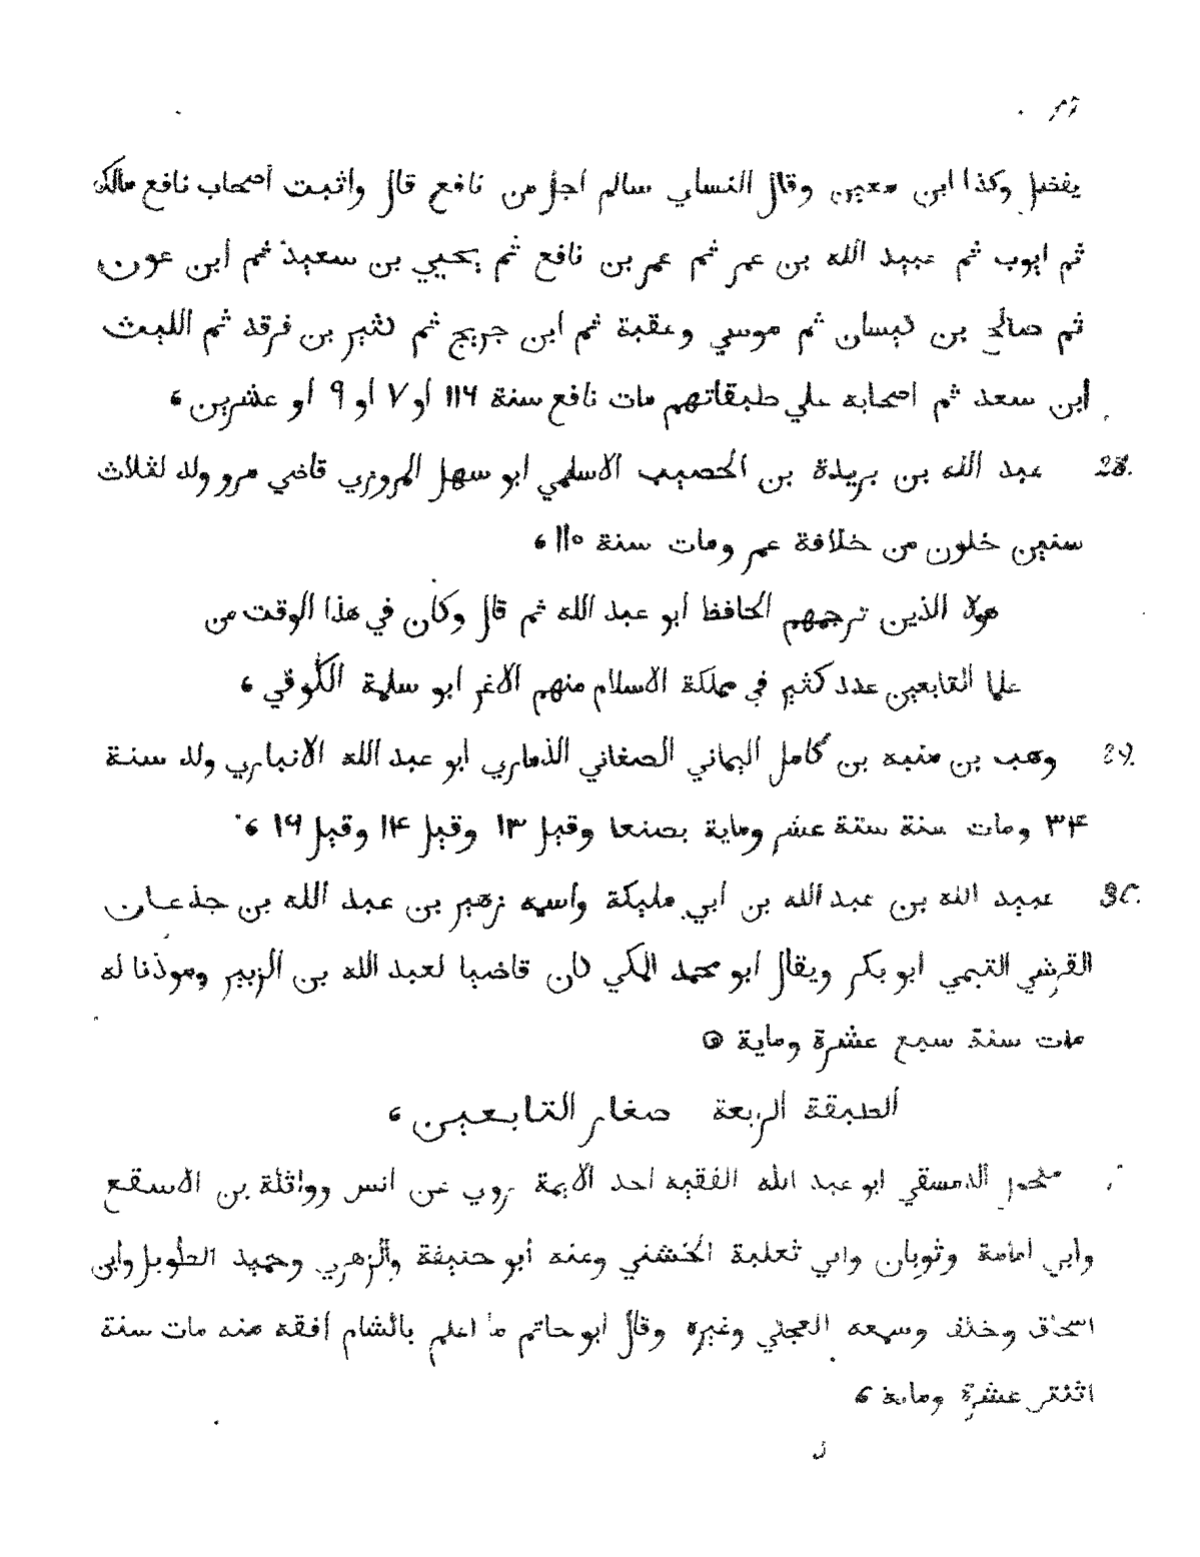 يفضل وكذا ابن معين وقال النساي سالم اجل من نافع قال واثبت أصحاب نافع مالك
ثم ايوب ثم عبيد الله بن عمر ثم عمر بن نافع ثم يحيي بن سعيد ثم ابن عون
ثم صالح بن كيسان ثم موسي وعقبة ثم ابن جريج ثم كثير بن فرقد ثم الليث
ابن سعد ثم اصحابه علي طبقاتهم مات نافع سنة ١١٦ او ٧ او ٩ او عشرين ،
28. عبد الله بن بريدة بن الحصيب الاسلمي ابو سهل المروزي قاضي مرو ولد لثلاث
سنين خلون من خلافة عمر ومات سنة ١١٥ ،
هولا الذين ترجمهم الحافظ أبو عبد الله ثم قال وكان في هذا الوقت من
علما التابعين عدد كثير في مملكة الاسلام منهم الاغر ابو سلمة الكوفي ،
29. وهب بن منبه بن كامل اليماني الصغاني الذماري أبو عبد الله الانباري ولد سنة
٣٤ ومات سنة ستة عشر وماية بصنعا وقيل ١٣ وقيل ١٤ وقيل ١٦ ،
30. عبيد الله بن عبد الله بن أبي مليكة واسمه زهير بن عبد الله بن جذعان
القرشي التيمي ابو بكر ويقال ابو محمد المكي كان قاضيا لعبد الله بن الزبير وموذنا له
مات سنة سبع عشرة وماية
ألطبقة ألربعة صغار التابعين ،
مكحول ألدمسقي ابو عبد الله الفقيه احد الايمة روي عن انس وواثلة بن الاسقع
وأبي امامة وثوبان وابي ثعلبة الخشني وعنه أبو حنيفة وألزهري وحميد الطويل وابن
اسحاق وخلف وسمعه العجلي وغيره وقال ابو حاتم ما اعلم بالشام أفقه منه مات سنة
اثنتي عشرة وماية ،